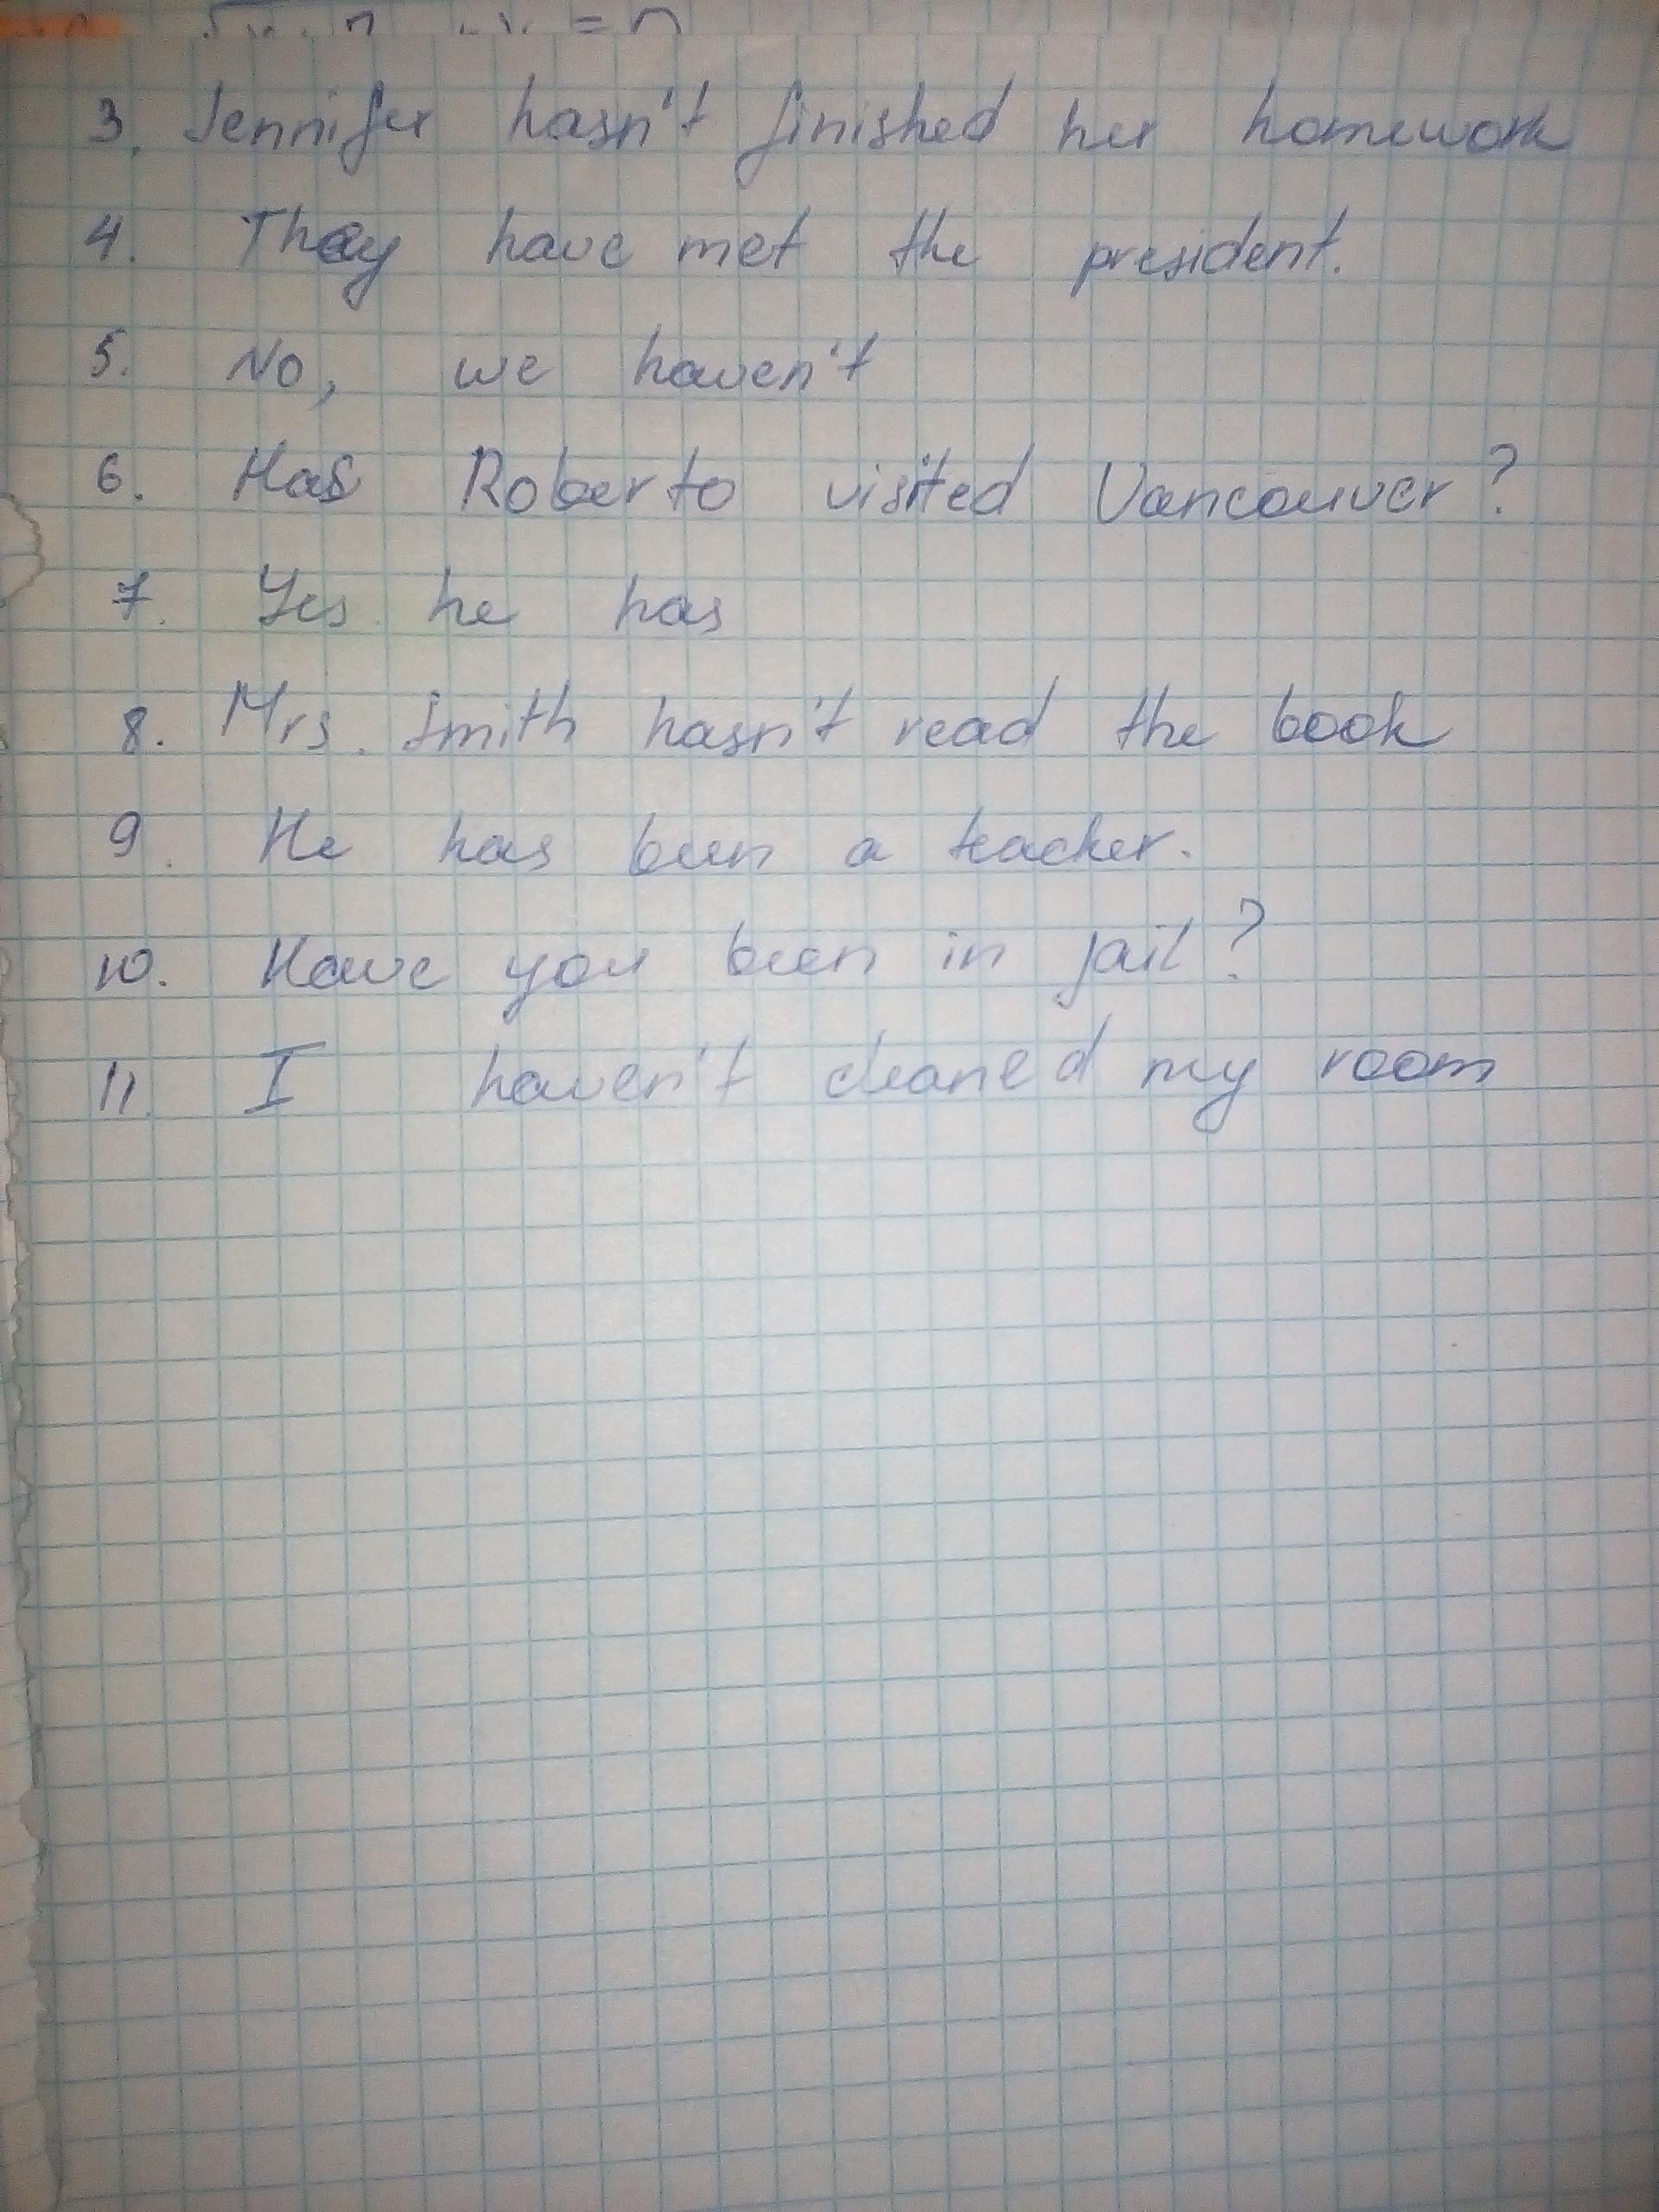 3. Jennifer hasn't finished her homework
4. They have met the president.
5. No, we haven't
6. Has Roberto visited Vancouver?
7. Yes he has
8. Mrs. Smith hasn't read the book
9. He has been a teacher.
10. Have you been in jail?
11. I haven't cleaned my room